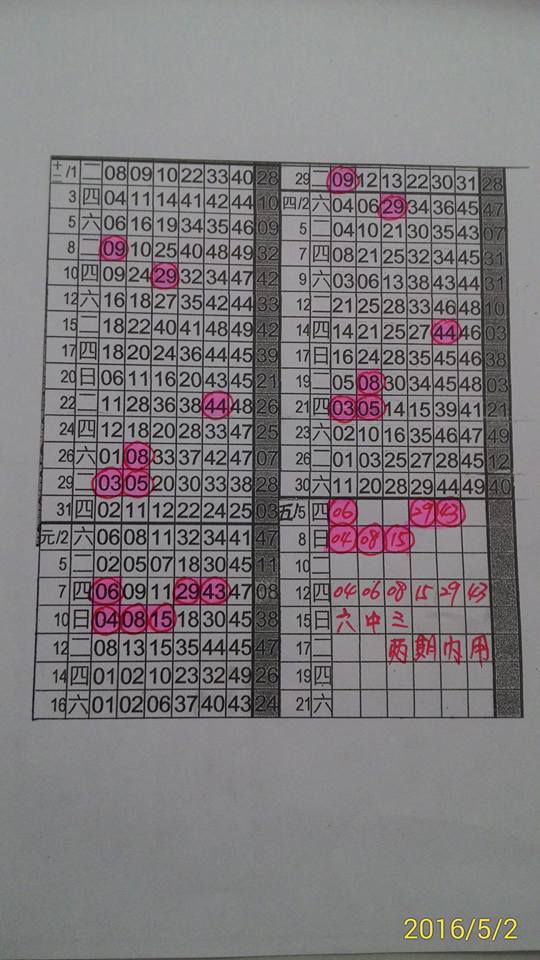 十二/1 二 08 09 10 22 33 40 28
3 四 04 11 14 41 42 44 10
5 六 06 16 19 34 35 46 09
8 二 09 10 25 40 48 49 32
10 四 09 24 29 32 34 47 42
12 六 16 18 27 35 42 44 33
15 二 18 22 40 41 48 49 42
17 四 18 20 24 36 44 45 39
20 日 06 11 16 20 43 45 21
22 二 11 28 36 38 44 48 26
24 四 12 18 20 28 33 47 25
26 六 01 08 33 37 42 47 07
29 二 03 05 20 30 33 38 28
31 四 02 11 12 22 24 25 03
元/2 六 06 08 11 32 34 41 47
5 二 02 05 07 18 30 45 11
7 四 06 09 11 29 43 47 08
10 日 04 08 15 18 30 45 38
12 二 08 13 15 35 44 45 47
14 四 01 02 10 23 32 49 26
16 六 01 02 06 37 40 43 24
29 二 09 12 13 22 30 31 28
四/2 六 04 06 29 34 36 45 47
5 二 04 10 21 30 35 43 07
7 四 08 21 25 32 34 45 31
9 六 03 06 13 38 43 44 31
12 二 21 25 28 33 46 48 10
14 四 14 21 25 27 44 46 03
17 日 16 24 28 35 45 46 38
19 二 05 08 30 34 45 48 03
21 四 03 05 14 15 39 41 21
23 六 02 10 16 35 46 47 49
26 二 01 03 25 27 28 45 12
30 六 11 20 28 29 44 49 40
五/5 四 06 29 43
8 日 04 08 15
10 二
12 四 04 06 08 15 29 43
15 日 六中三
17 二 兩期内用
19 四
21 六
2016/5/2